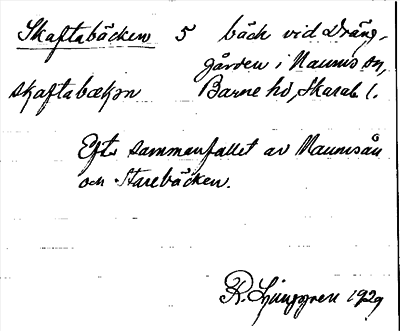 Skaftabäcken 5 bäck vid Dräng-
gården i Naums sn,
skaftabækən Barne hd, Skarab. l.
Eft. sammanfallet av Naumsån
och Starebäcken.
R. Ljunggren 1929